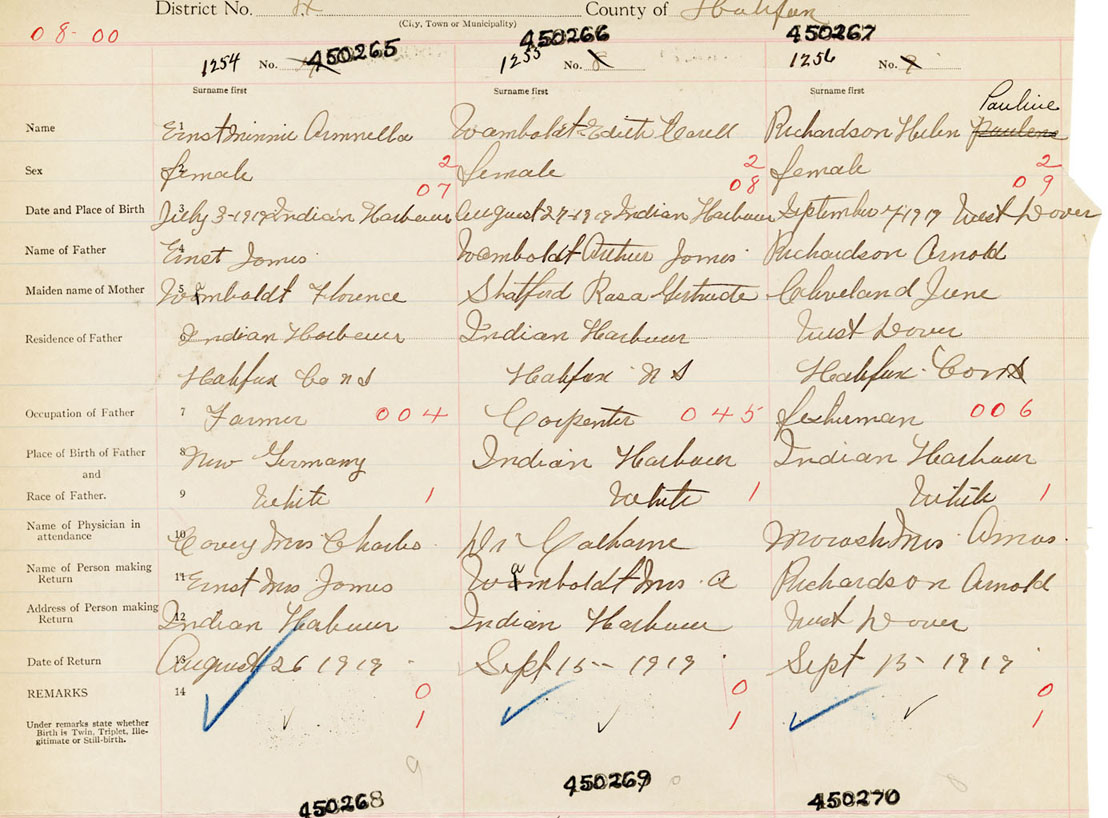 District No. County of Halifax
(City, Town or Municipality)
08-00
450265 450266 450267
1254 No. 1255 No. 8 1256 No. 9
Surname first Surname first Surname first
Pauline
Name 1 Ernst Minnie Wamboldt Edith Richardson Helen
Sex 2 female 2 female 2 female 2
07 08 09
Date and Place of Birth 3 July 3-1919 Indian Harbour August 27-1919 Indian Harbour September 7 1919 West Dover
Name of Father 4 Ernst James Wamboldt Arthur James Richardson Arnold
Maiden name of Mother 5 Wamboldt Florence Shatford Rosa Gertrude Cleveland June
Residence of Father 6 Indian Harbour Indian Harbour West Dover
Halifax Co N S Halifax N S Halifax Co N S
Occupation of Father 7 Farmer 004 Carpenter 045 fisherman 006
Place of Birth of Father 8 New Germany Indian Harbour Indian Harbour
and
Race of Father. 9 White 1 White 1 White 1
Name of Physician in
attendance 10 Covey Mrs Charles Dr Mrs Amos.
Name of Person making
Return 11 Ernst Mrs James Wamboldt Mrs. A Richardson Arnold
Address of Person making
Return 12 Indian Harbour Indian Harbour West Dover
Date of Return 13 August 26 1919 Sept 15- 1919 Sept 15- 1919
REMARKS 14 0 0 0
Under remarks state whether
Birth is Twin, Triplet, Ille-
gitimate or Still-birth. 1 1 1
9
450268 450269 450270